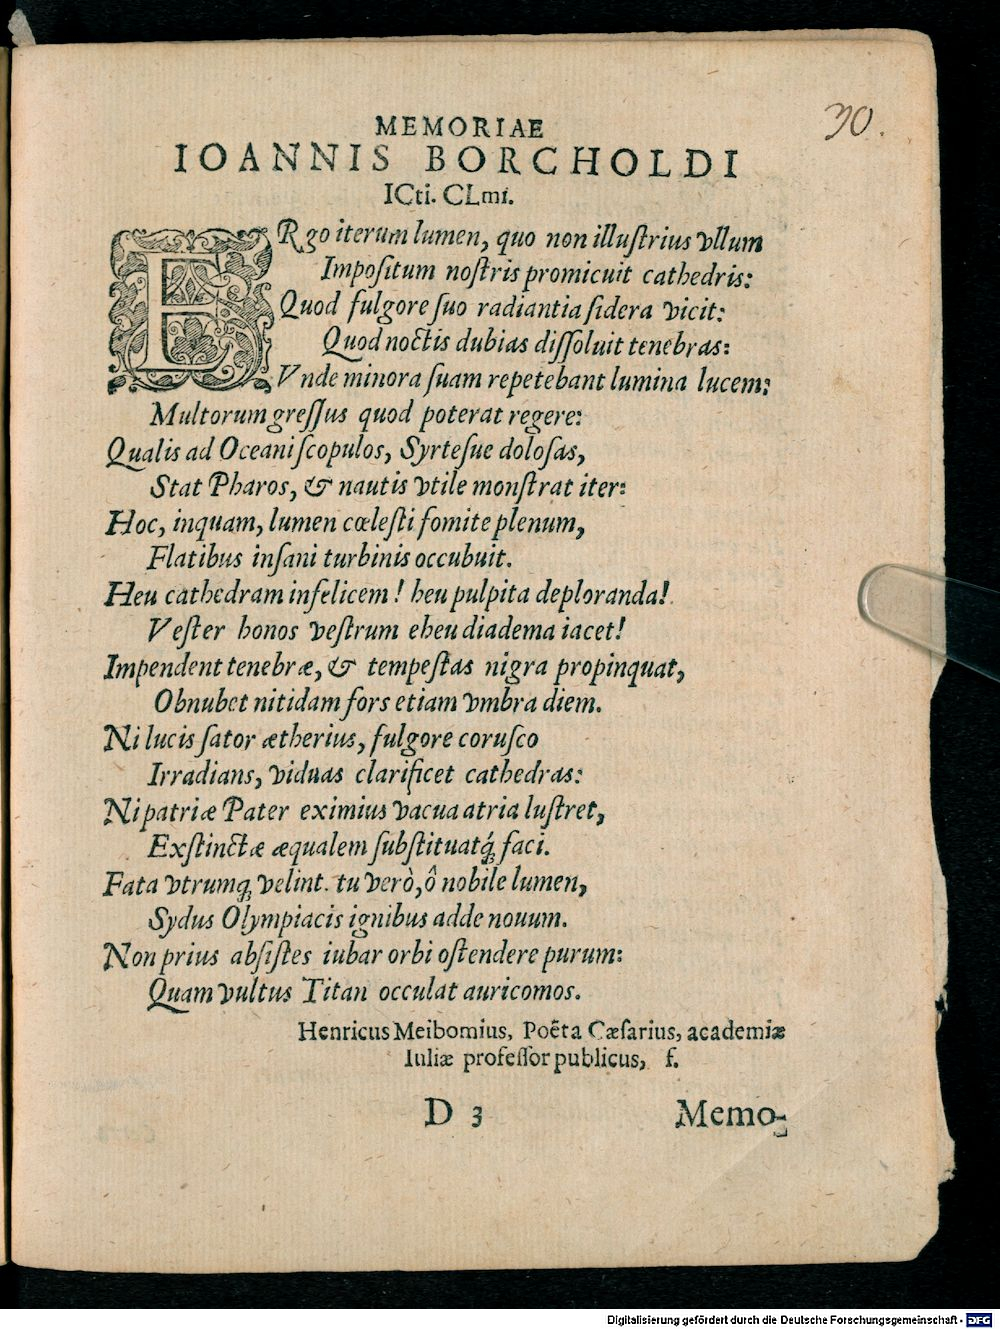 30.
MEMORIAE
IOANNIS BORCHOLDI
ICti. CLmi.
ERgo iterum lumen, quo non illuſtrius vllum
Impoſitum noſtris promicuit cathedris:
Quod fulgore ſuo radiantia ſidera vicit:
Quod noctis dubias diſſoluit tenebras:
Vnde minora ſuam repetebant lumina lucem:
Multorum greſſus quod poterat regere:
Qualis ad Oceani ſcopulos, Syrteſue doloſas,
Stat Pharos, & nautis vtile monſtrat iter:
Hoc, inquam, lumen cœleſti fomite plenum,
Flatibus inſani turbinis occubuit.
Heu cathedram infelicem! heu pulpita deploranda!
Veſter honos veſtrum eheu diadema iacet!
Impendent tenebræ, & tempeſtas nigra propinquat,
Obnubet nitidam fors etiam vmbra diem.
Ni lucis ſator ætherius, fulgore coruſco
Irradians, viduas clarificet cathedras:
Ni patriæ Pater eximius vacua atria luſtret,
Exſtinctæ æqualem ſubſtituatq́ꝫ faci.
Fata vtrumqꝫ velint. tu verò, ô nobile lumen,
Sydus Olympiacis ignibus adde nouum.
Non prius abſiſtes iubar orbi oſtendere purum:
Quam vultus Titan occulat auricomos.
Henricus Meibomius, Poëta Cæſarius, academiæ
Iuliæ profeſſor publicus, f.
D 3 Memo-
Digitalisierung gefördert durch die Deutsche Forschungsgemeinschaft - DFG